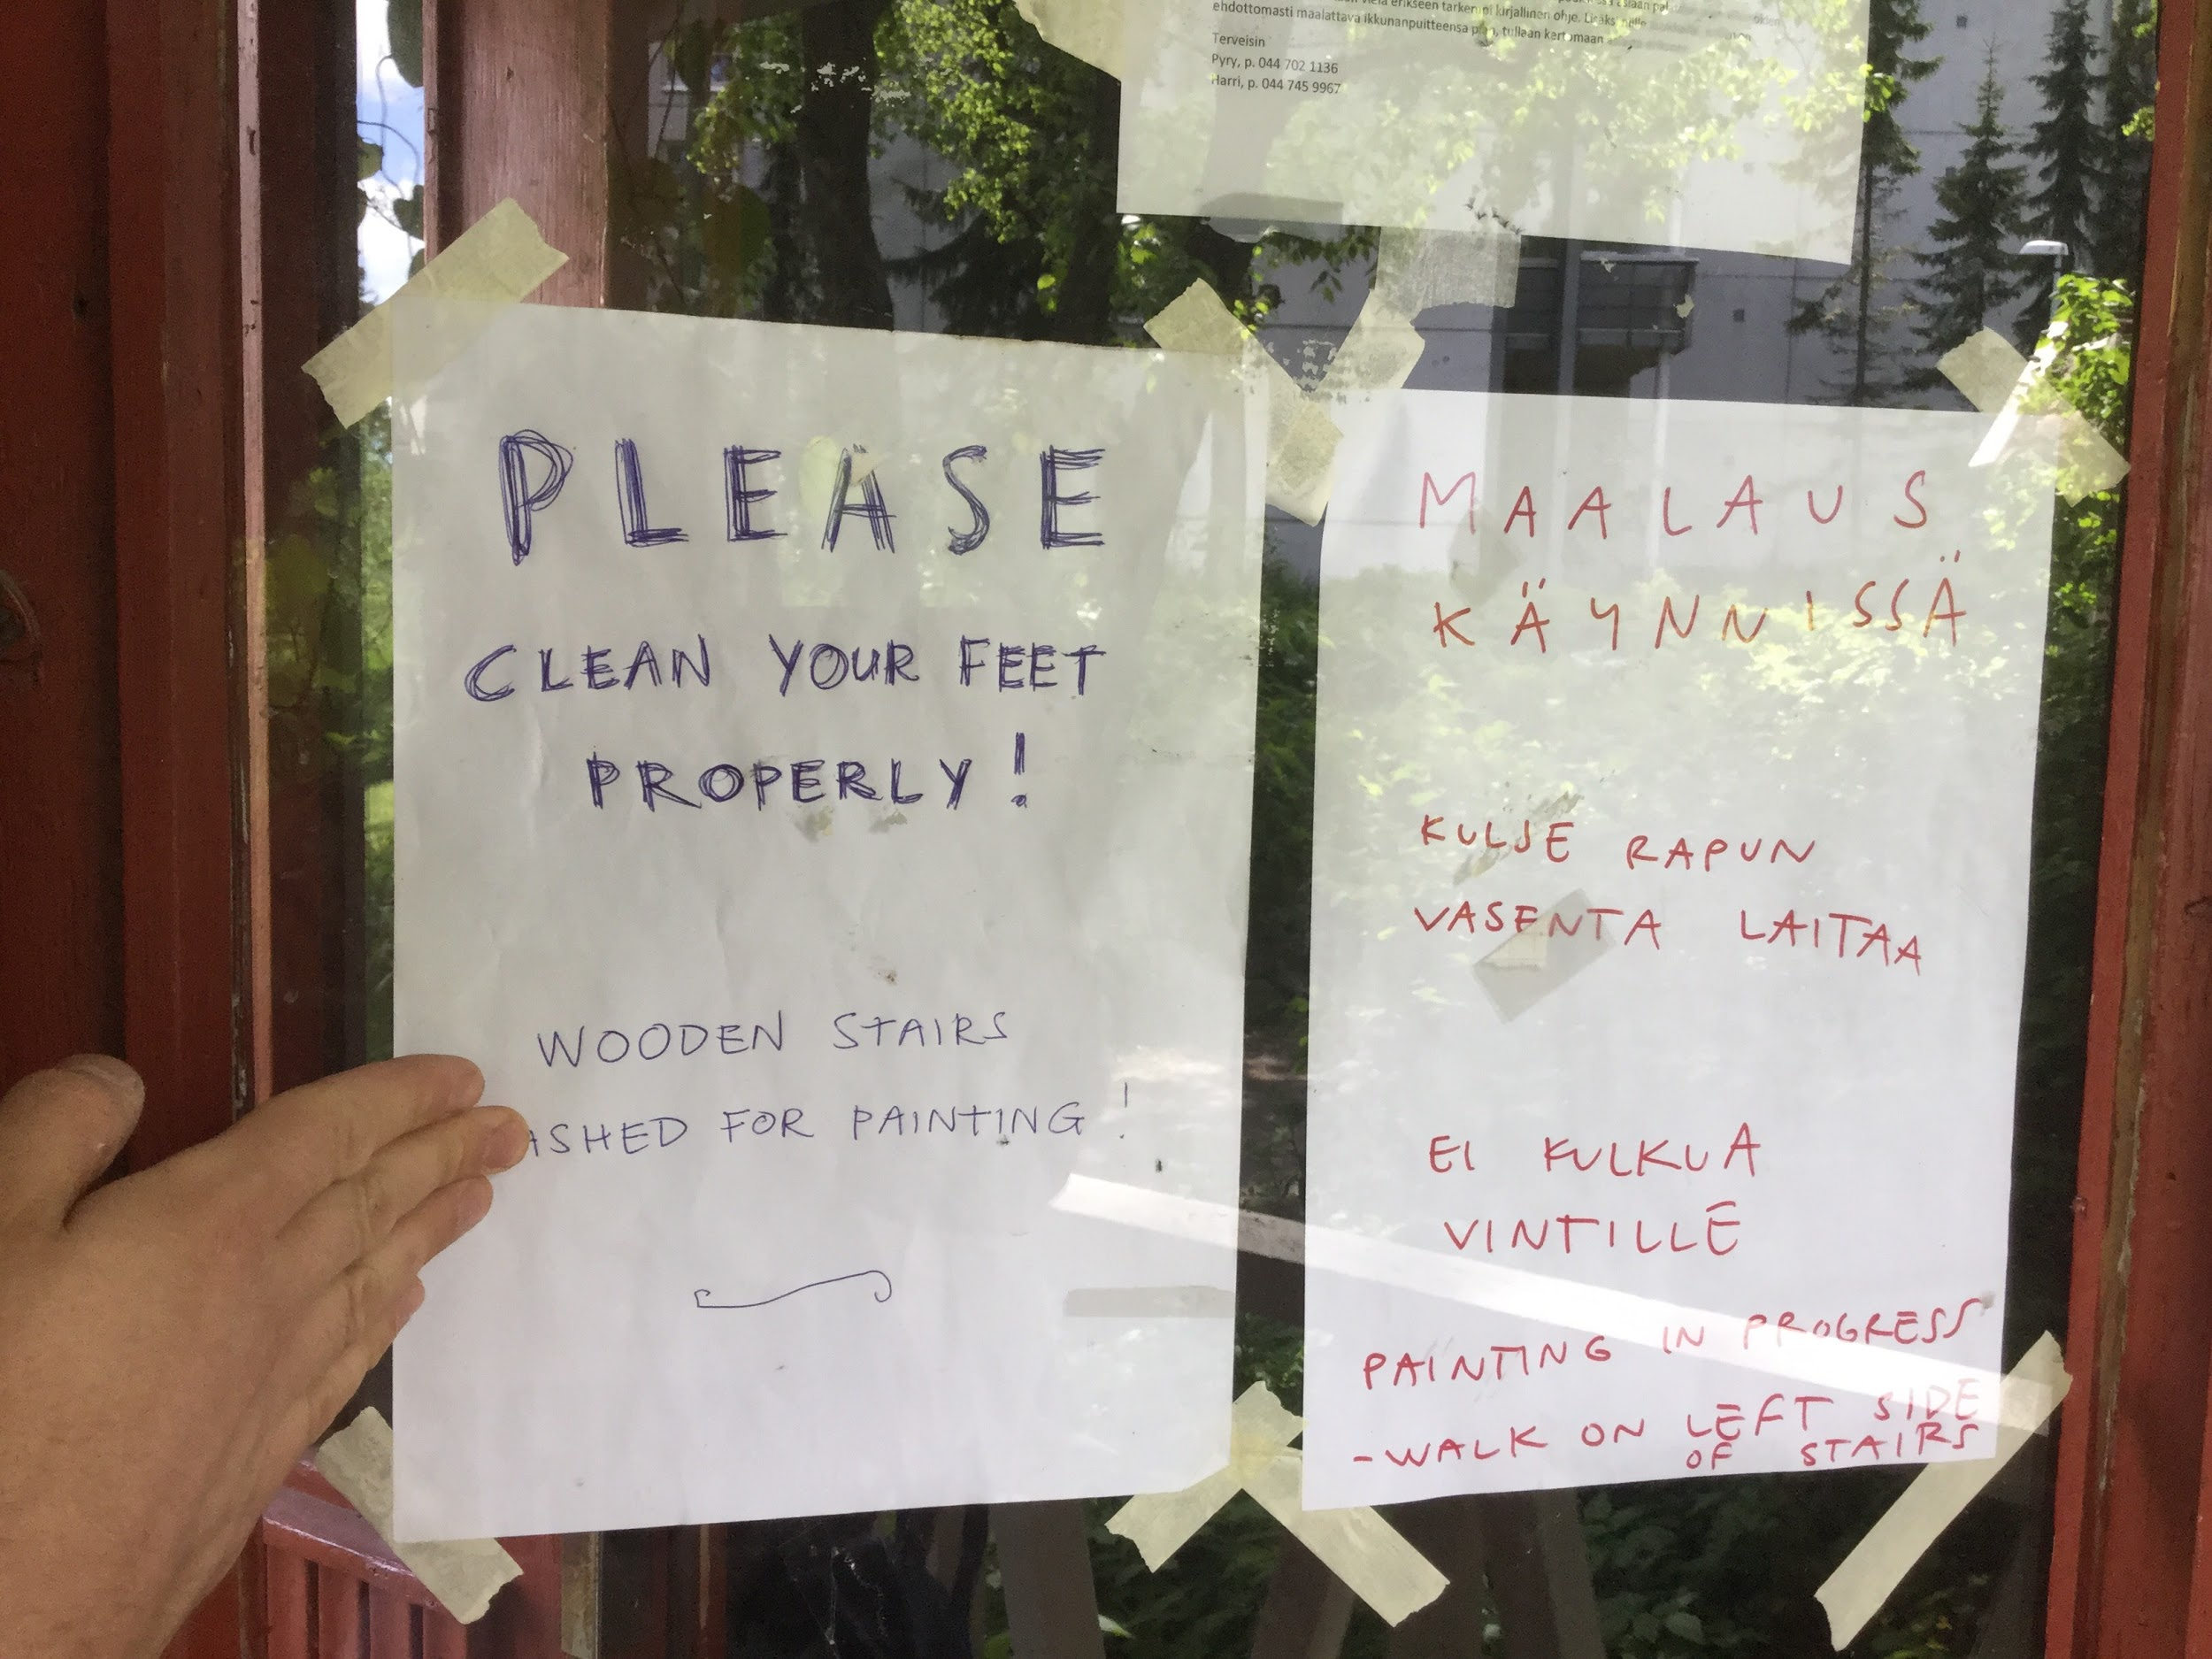 erikseen tarkempi kirjallinen ohje.
ehdottomasti maalattava ikkunanpuitteensa tullaan kertomaan
Terveisin
Pyry, p. 044 702 1136
Harri, p. 044 745 9967
PLEASE
CLEAN YOUR FEET
PROPERLY!
WOODEN STAIRS
ASHED FOR PAINTING!
MAALAUS
KÄYNNISSÄ
KULJE RAPUN
VASENTA LAITAA
EI KULKUA
VINTILLE
PAINTING IN PROGRESS
-WALK ON LEFT SIDE
OF STAIRS